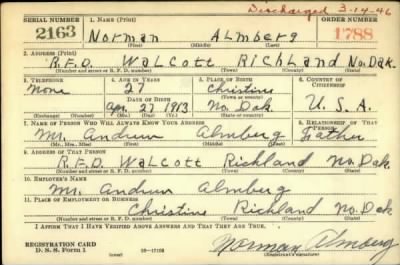 Discharged 3-14-46
SERIAL NUMBER 1. NAME (Print) ORDER NUMBER
2163 Norman Almberg 1788
(First) (Middle) (Last)
2. ADDRESS (Print)
R.F.D. Walcott Richland No. Dak.
(Number and street or R. F. D. number) (Town) (County) (State)
3. TELEPHONE 4. AGE IN YEARS 5. PLACE OF BIRTH 6. COUNTRY OF CITIZENSHIP
None 27 Christine
DATE OF BIRTH (Town or county)
Apr. 27 1913 No. Dak. U.S.A.
(Exchange) (Number) (Mo.) (Day) (Yr.) (State or country)
7. NAME OF PERSON WHO WILL ALWAYS KNOW YOUR ADDRESS 8. RELATIONSHIP OF THAT PERSON
Mr. Andrew Almberg Father
(Mr., Mrs., Miss) (First) (Middle) (Last)
9. ADDRESS OF THAT PERSON
R.F.D. Walcott Richland No. Dak.
(Number and street or R. F. D. number) (Town) (County) (State)
10. EMPLOYER'S NAME
Mr. Andrew Almberg
11. PLACE OF EMPLOYMENT OR BUSINESS
Christine Richland No. Dak
(Number and street or R. F. D. number) (Town) (County) (State)
I AFFIRM THAT I HAVE VERIFIED ABOVE ANSWERS AND THAT THEY ARE TRUE.
REGISTRATION CARD
D. S. S. Form 1 (over) Norman Almberg